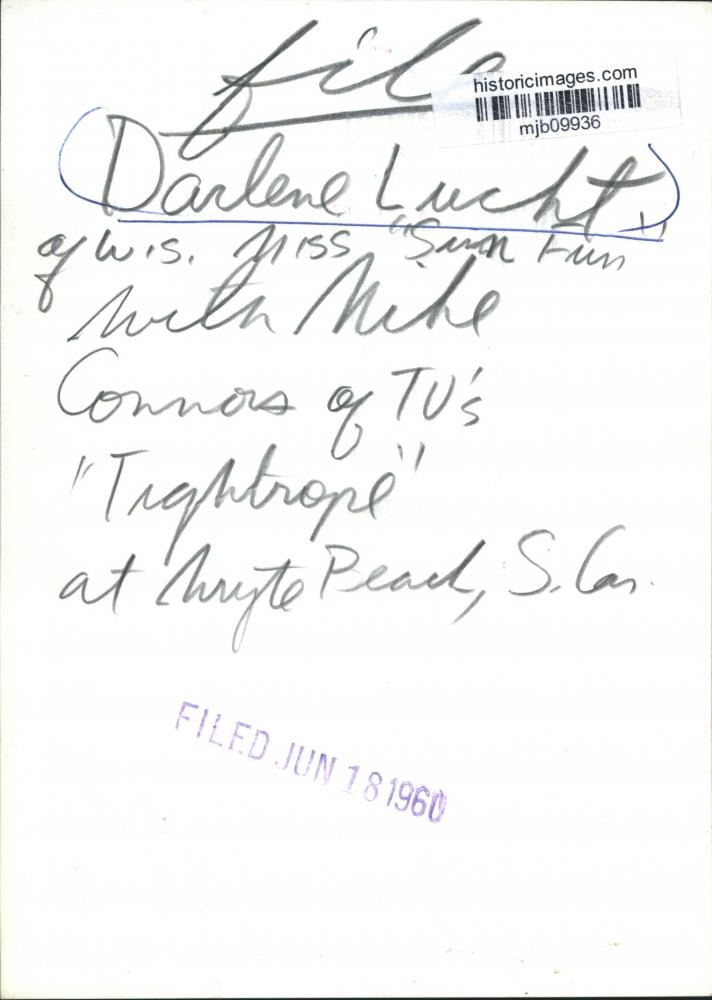 file
historicimages.com
mjb09936
(Darlene Lucht)
of Wis. Miss "Sun Fun"
with Mike
Connors of TV's
"Tightrope"
at Mryte Beach, S. Car.
FILED JUN 18 1960